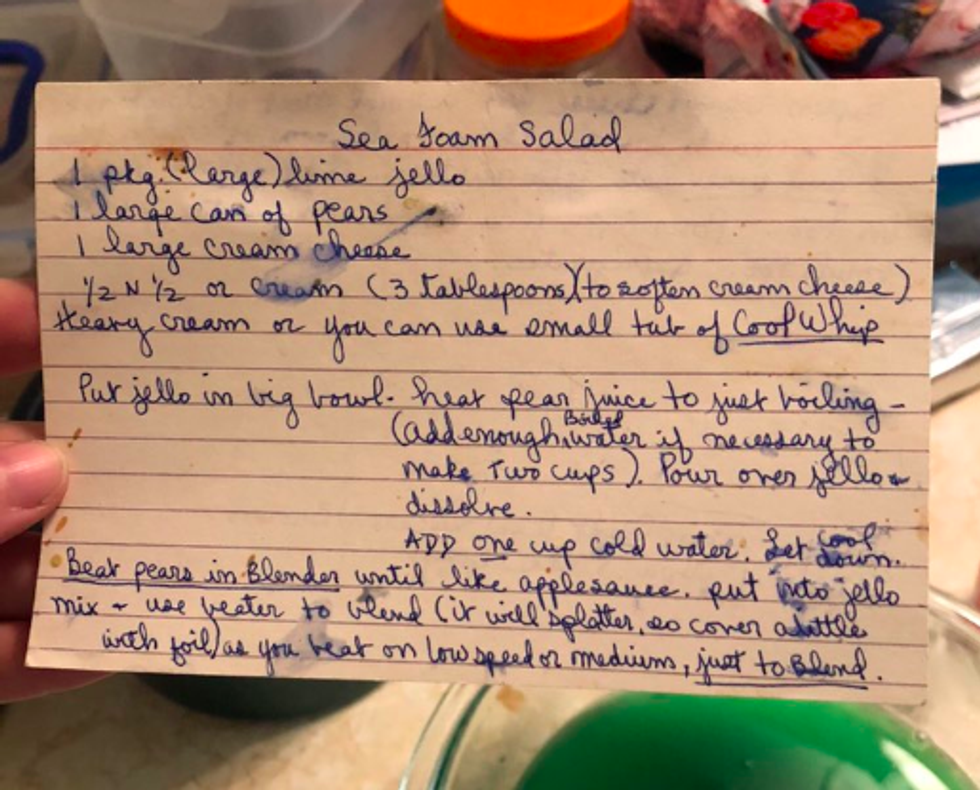 Sea Foam Salad
1 pkg. (large) lime jello
1 large can of pears
1 large cream cheese
1/2 N 1/2 or cream (3 tablespoons)(to soften cream cheese)
Heavy cream or you can use small tub of Cool Whip
Put jello in big bowl - heat pear juice to just boiling -
(add enough Boiled water if necessary to
make Two cups). Pour over jello -
dissolve.
ADD one cup cold water. Let cool down.
Beat pears in Blender until like applesauce. put into jello
mix + use beater to blend (it will splatter, so cover a little
with foil) as you beat on low speed or medium, just to Blend.